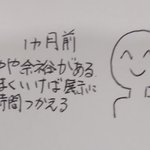 1ヵ月前
やや余裕がある
まくいけば展示に
時間つかえる